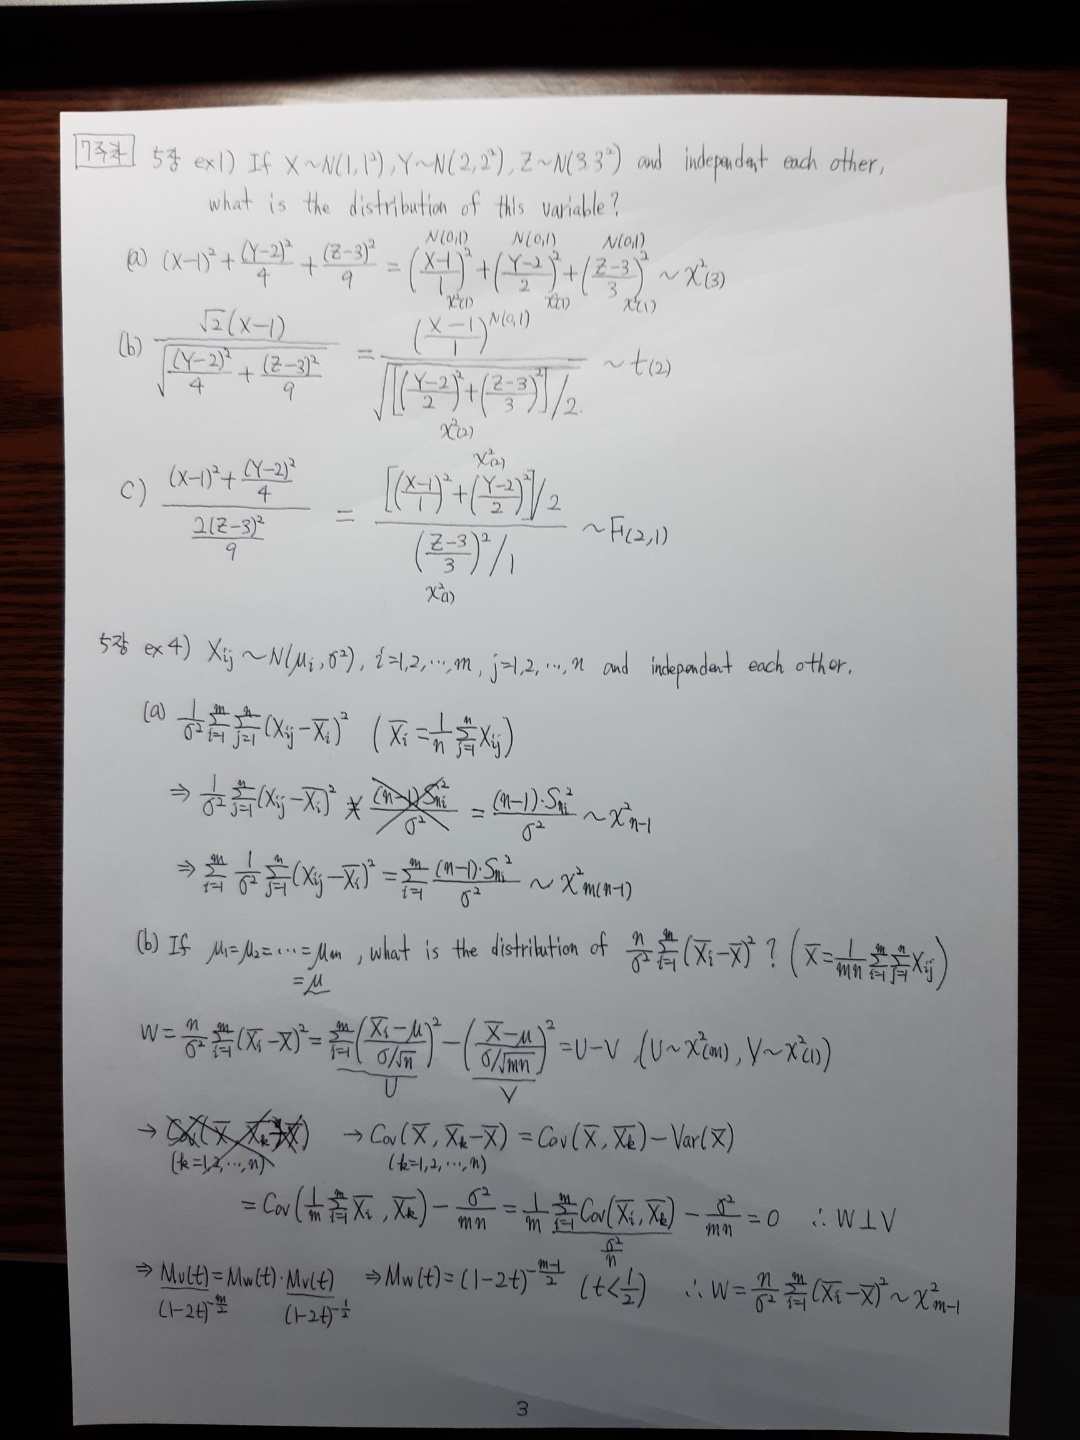 7주차 5장 ex1) If X~N(1,1²), Y~N(2,2²), Z~N(3,3²) and independent each other,
what is the distribution of this variable?
N(0,1) N(0,1) N(0,1)
(a) (X-1)² + (Y-2)²/4 + (Z-3)²/9 = ((X-1)/1)² + ((Y-2)/2)² + ((Z-3)/3)² ~ χ²(3)
χ²(1) χ²(1) χ²(1)
(b) √2(X-1) / √((Y-2)²/4 + (Z-3)²/9) = ((X-1)/1) N(0,1) / √([((Y-2)/2)² + ((Z-3)/3)²]/2) ~ t(2)
χ²(2)
χ²(2)
c) ((X-1)² + (Y-2)²/4) / (2(Z-3)²/9) = [((X-1)/1)² + ((Y-2)/2)²]/2 / ((Z-3)/3)²/1 ~ F(2,1)
χ²(1)
5장 ex4) Xij ~ N(μi, σ²), i=1,2,…,m, j=1,2,…,n and independent each other.
(a) 1/σ² Σ_{i=1}^{m} Σ_{j=1}^{n} (Xij - X̄i)² (X̄i = 1/n Σ_{j=1}^{n} Xij)
⇒ 1/σ² Σ_{j=1}^{n} (Xij - X̄i)² (n-1)Sni²/σ² = (n-1)·Sni²/σ² ~ χ²n-1
⇒ Σ_{i=1}^{m} 1/σ² Σ_{j=1}^{n} (Xij - X̄i)² = Σ_{i=1}^{m} (n-1)·Sni²/σ² ~ χ²m(n-1)
(b) If μ1=μ2=…=μm, what is the distribution of n/σ² Σ_{i=1}^{m} (X̄i - X̄)²? (X̄ = 1/mn Σ_{i=1}^{m} Σ_{j=1}^{n} Xij)
=μ
W = n/σ² Σ_{i=1}^{m} (X̄i - X̄)² = Σ_{i=1}^{m} ((X̄i - μ)/(σ/√n))² - ((X̄ - μ)/(σ/√mn))² = U-V, (U~χ²(m), V~χ²(1))
U V
→ → Cov(X̄, X̄k - X̄) = Cov(X̄, X̄k) - Var(X̄)
(k=1,2,…,n) (k=1,2,…,n)
= Cov(1/m Σ_{i=1}^{m} X̄i, X̄k) - σ²/mn = 1/m Σ_{i=1}^{m} Cov(X̄i, X̄k) - σ²/mn = 0 ∴ W⊥V
σ²/n
⇒ Mu(t) = Mw(t)·Mv(t) ⇒ Mw(t) = (1-2t)^{-(m-1)/2} (t<1/2) ∴ W = n/σ² Σ_{i=1}^{m} (X̄i - X̄)² ~ χ²m-1
(1-2t)^{-m/2} (1-2t)^{-1/2}
3